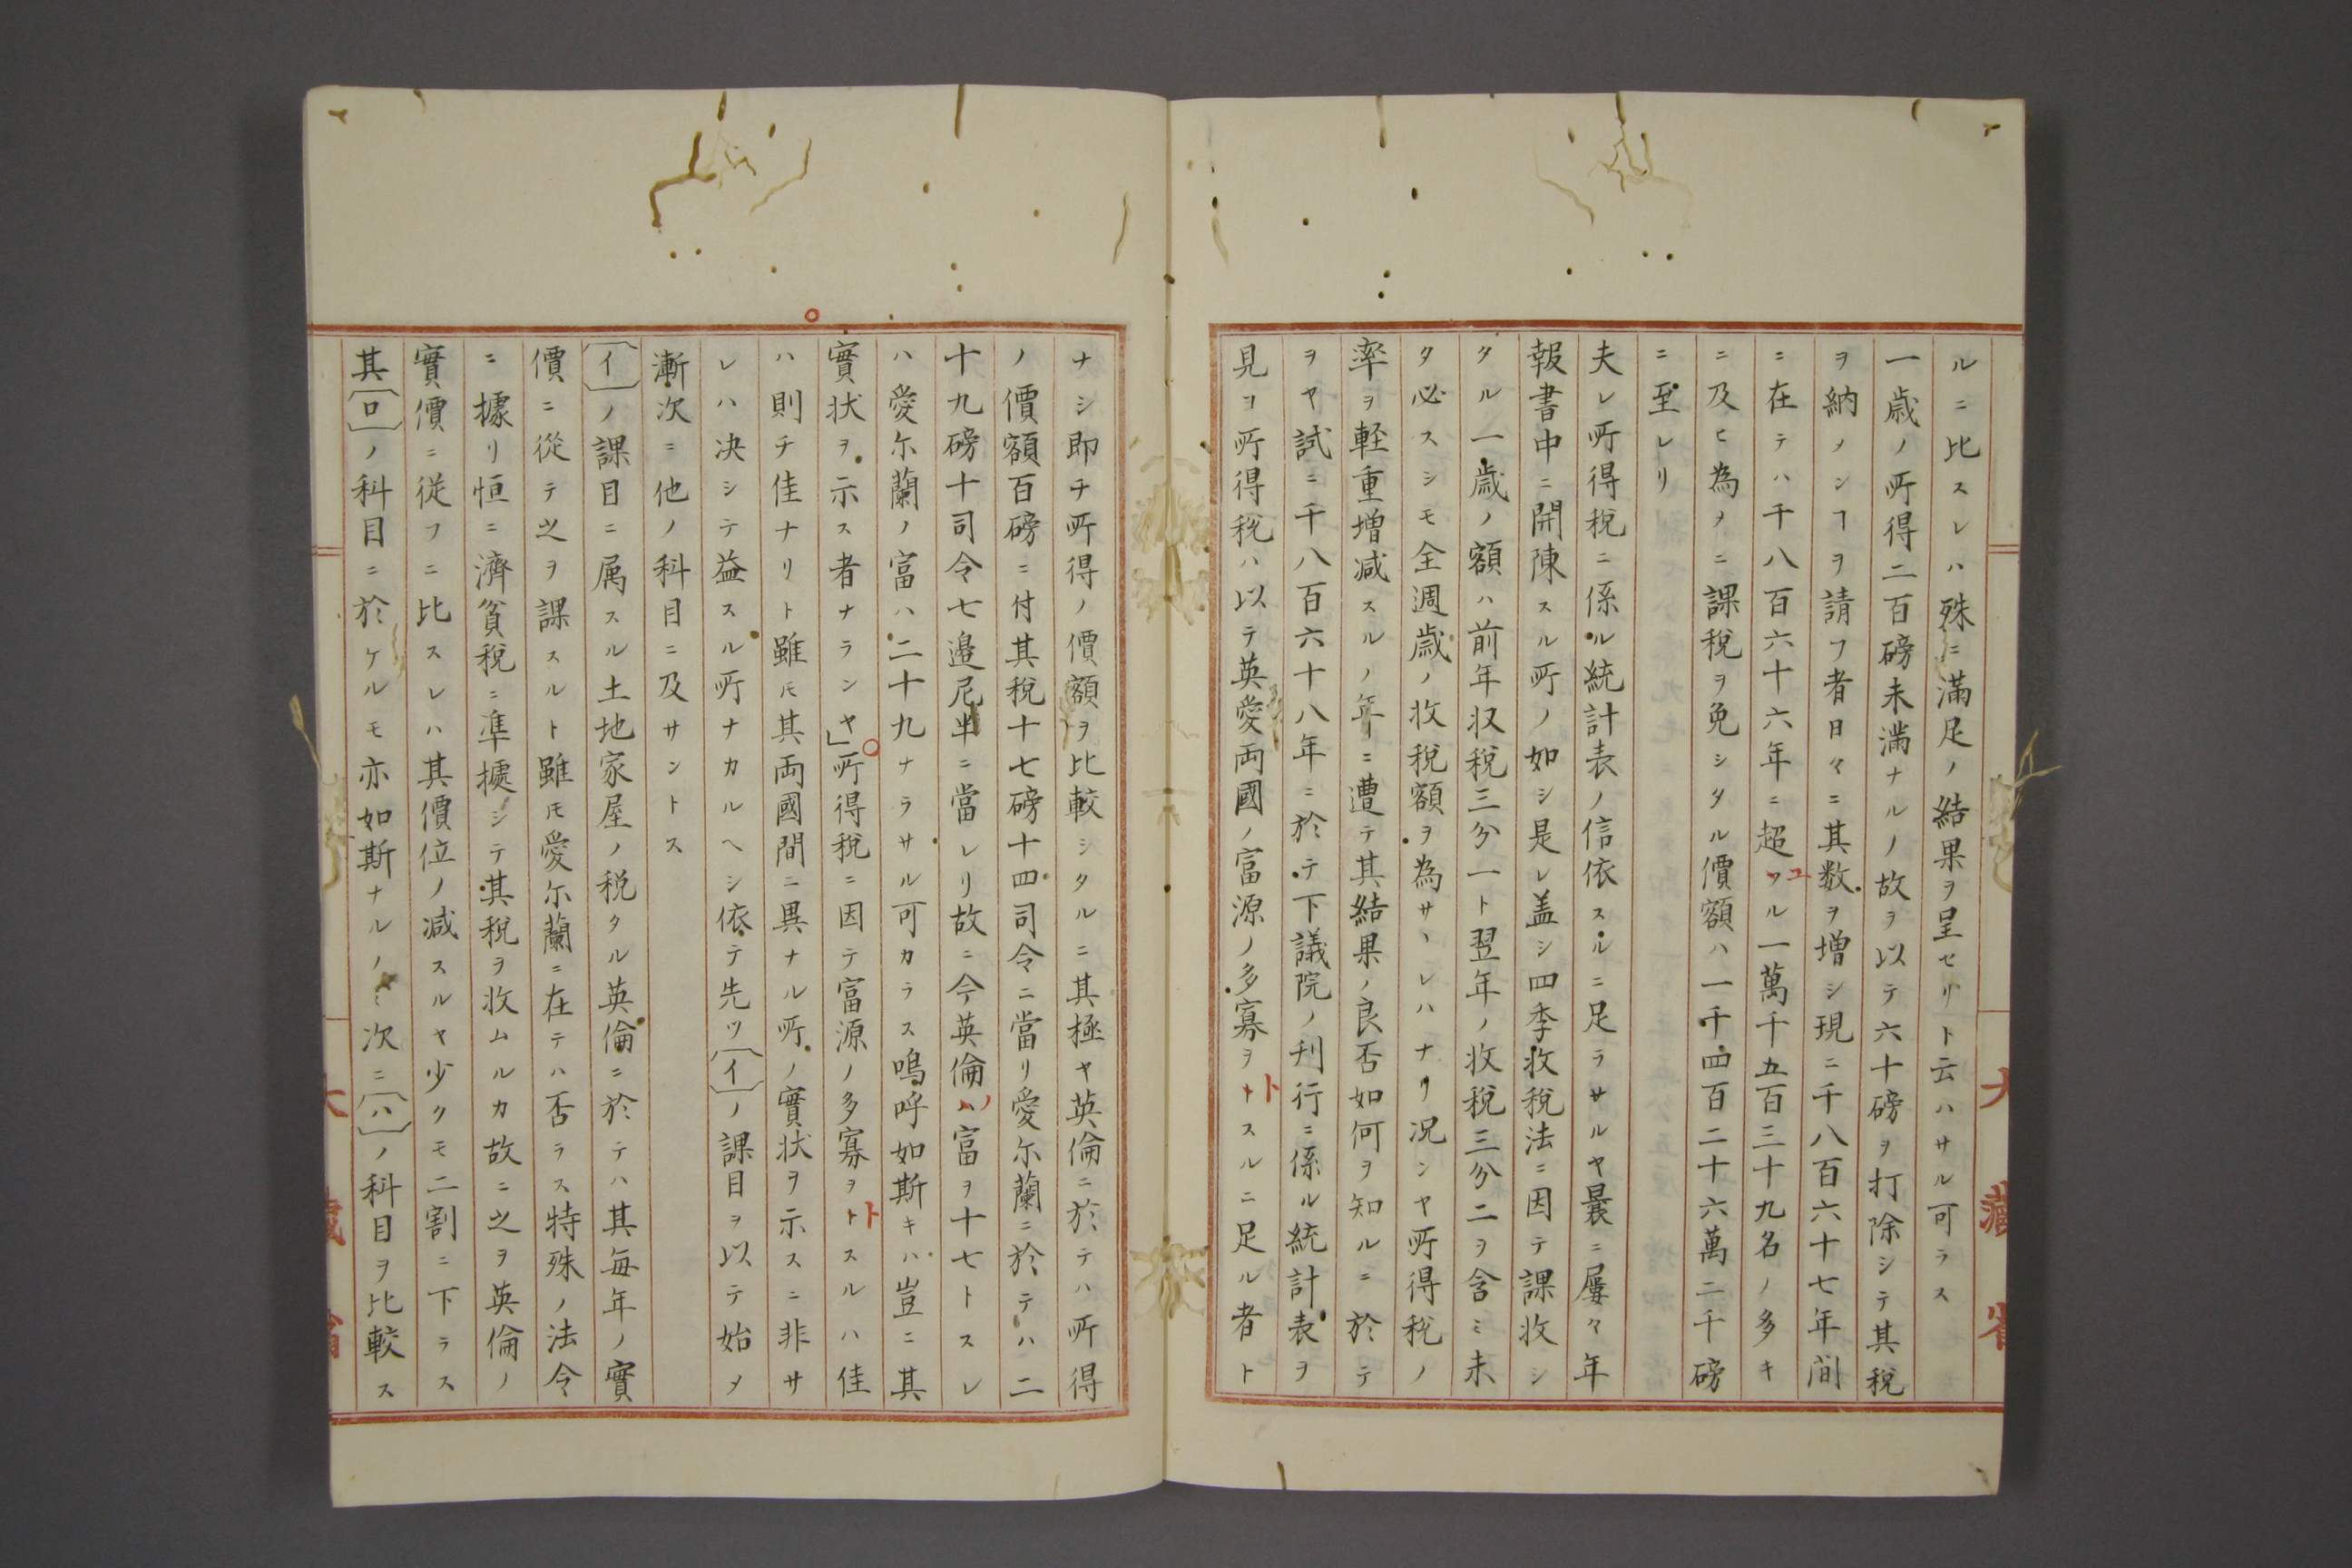 ルニ比スレハ殊ニ滿足ノ結果ヲ呈セリト云ハサル可ラス
一歳ノ所得二百磅未滿ナルノ故ヲ以テ六十磅ヲ打除シテ其税
ヲ納ノンヿヲ請フ者日々ニ其数ヲ増シ現ニ千八百六十七年間
ニ在テハ千八百六十六年ニ超ユル一萬千五百三十九名ノ多キ
ニ及ヒ為メニ課税ヲ免シタル價額ハ一千四百二十六萬二千磅
ニ至レリ
夫レ所得税ニ係ル統計表ノ信依スルニ足ラサルヤ曩ニ屢々年
報書中ニ開陳スル所ノ如シ是レ盖シ四季收税法ニ因テ課收シ
タル一歳ノ額ハ前年収税三分一ト翌年ノ收税三分二ヲ含ミ未
タ必スシモ全週歳ノ收税額ヲ為サヽレハナリ况ンヤ所得税ノ
率ヲ軽重増减スルノ年ニ遭テ其結果ノ良否如何ヲ知ルニ於テ
ヲヤ試ニ千八百六十八年ニ於テ下議院ノ刋行ニ係ル統計表ヲ
見ヨ所得税ハ以テ英愛両國ノ富源ノ多寡ヲトスルニ足ル者ト
大藏省
ナシ即チ所得ノ價額ヲ比較シタルニ其極ヤ英倫ニ於テハ所得
ノ價額百磅ニ付其税十七磅十四司令ニ當リ愛尓蘭ニ於テハ二
十九磅十司令七邉尼半ニ當レリ故ニ今英倫ハ富ヲ十七トスレ
ハ愛尓蘭ノ富ハ二十九ナラサル可カラス嗚呼如斯キハ豈ニ其
實状ヲ示ス者ナランヤ」所得税ニ因テ富源ノ多寡ヲトスルハ佳
ハ則チ佳ナリト雖𪜈其両國間ニ異ナル所ノ實状ヲ示スニ非サ
レハ决シテ益スル所ナカルヘシ依テ先ツ〔イ〕ノ課目ヲ以テ始メ
漸次ニ他ノ科目ニ及サントス
〔イ〕ノ課目ニ属スル土地家屋ノ税タル英倫ニ於テハ其毎年ノ實
價ニ從テ之ヲ課スルト雖𪜈愛尓蘭ニ在テハ否ラス特殊ノ法令
ニ據リ恒ニ濟貧税ニ準據シテ其税ヲ收ムルカ故ニ之ヲ英倫ノ
實價ニ従フニ比スレハ其價位ノ减スルヤ少クモ二割ニ下ラス
其〔ロ〕ノ科目ニ於ケルモ亦如斯ナルノミ次ニ〔ハ〕ノ科目ヲ比較ス